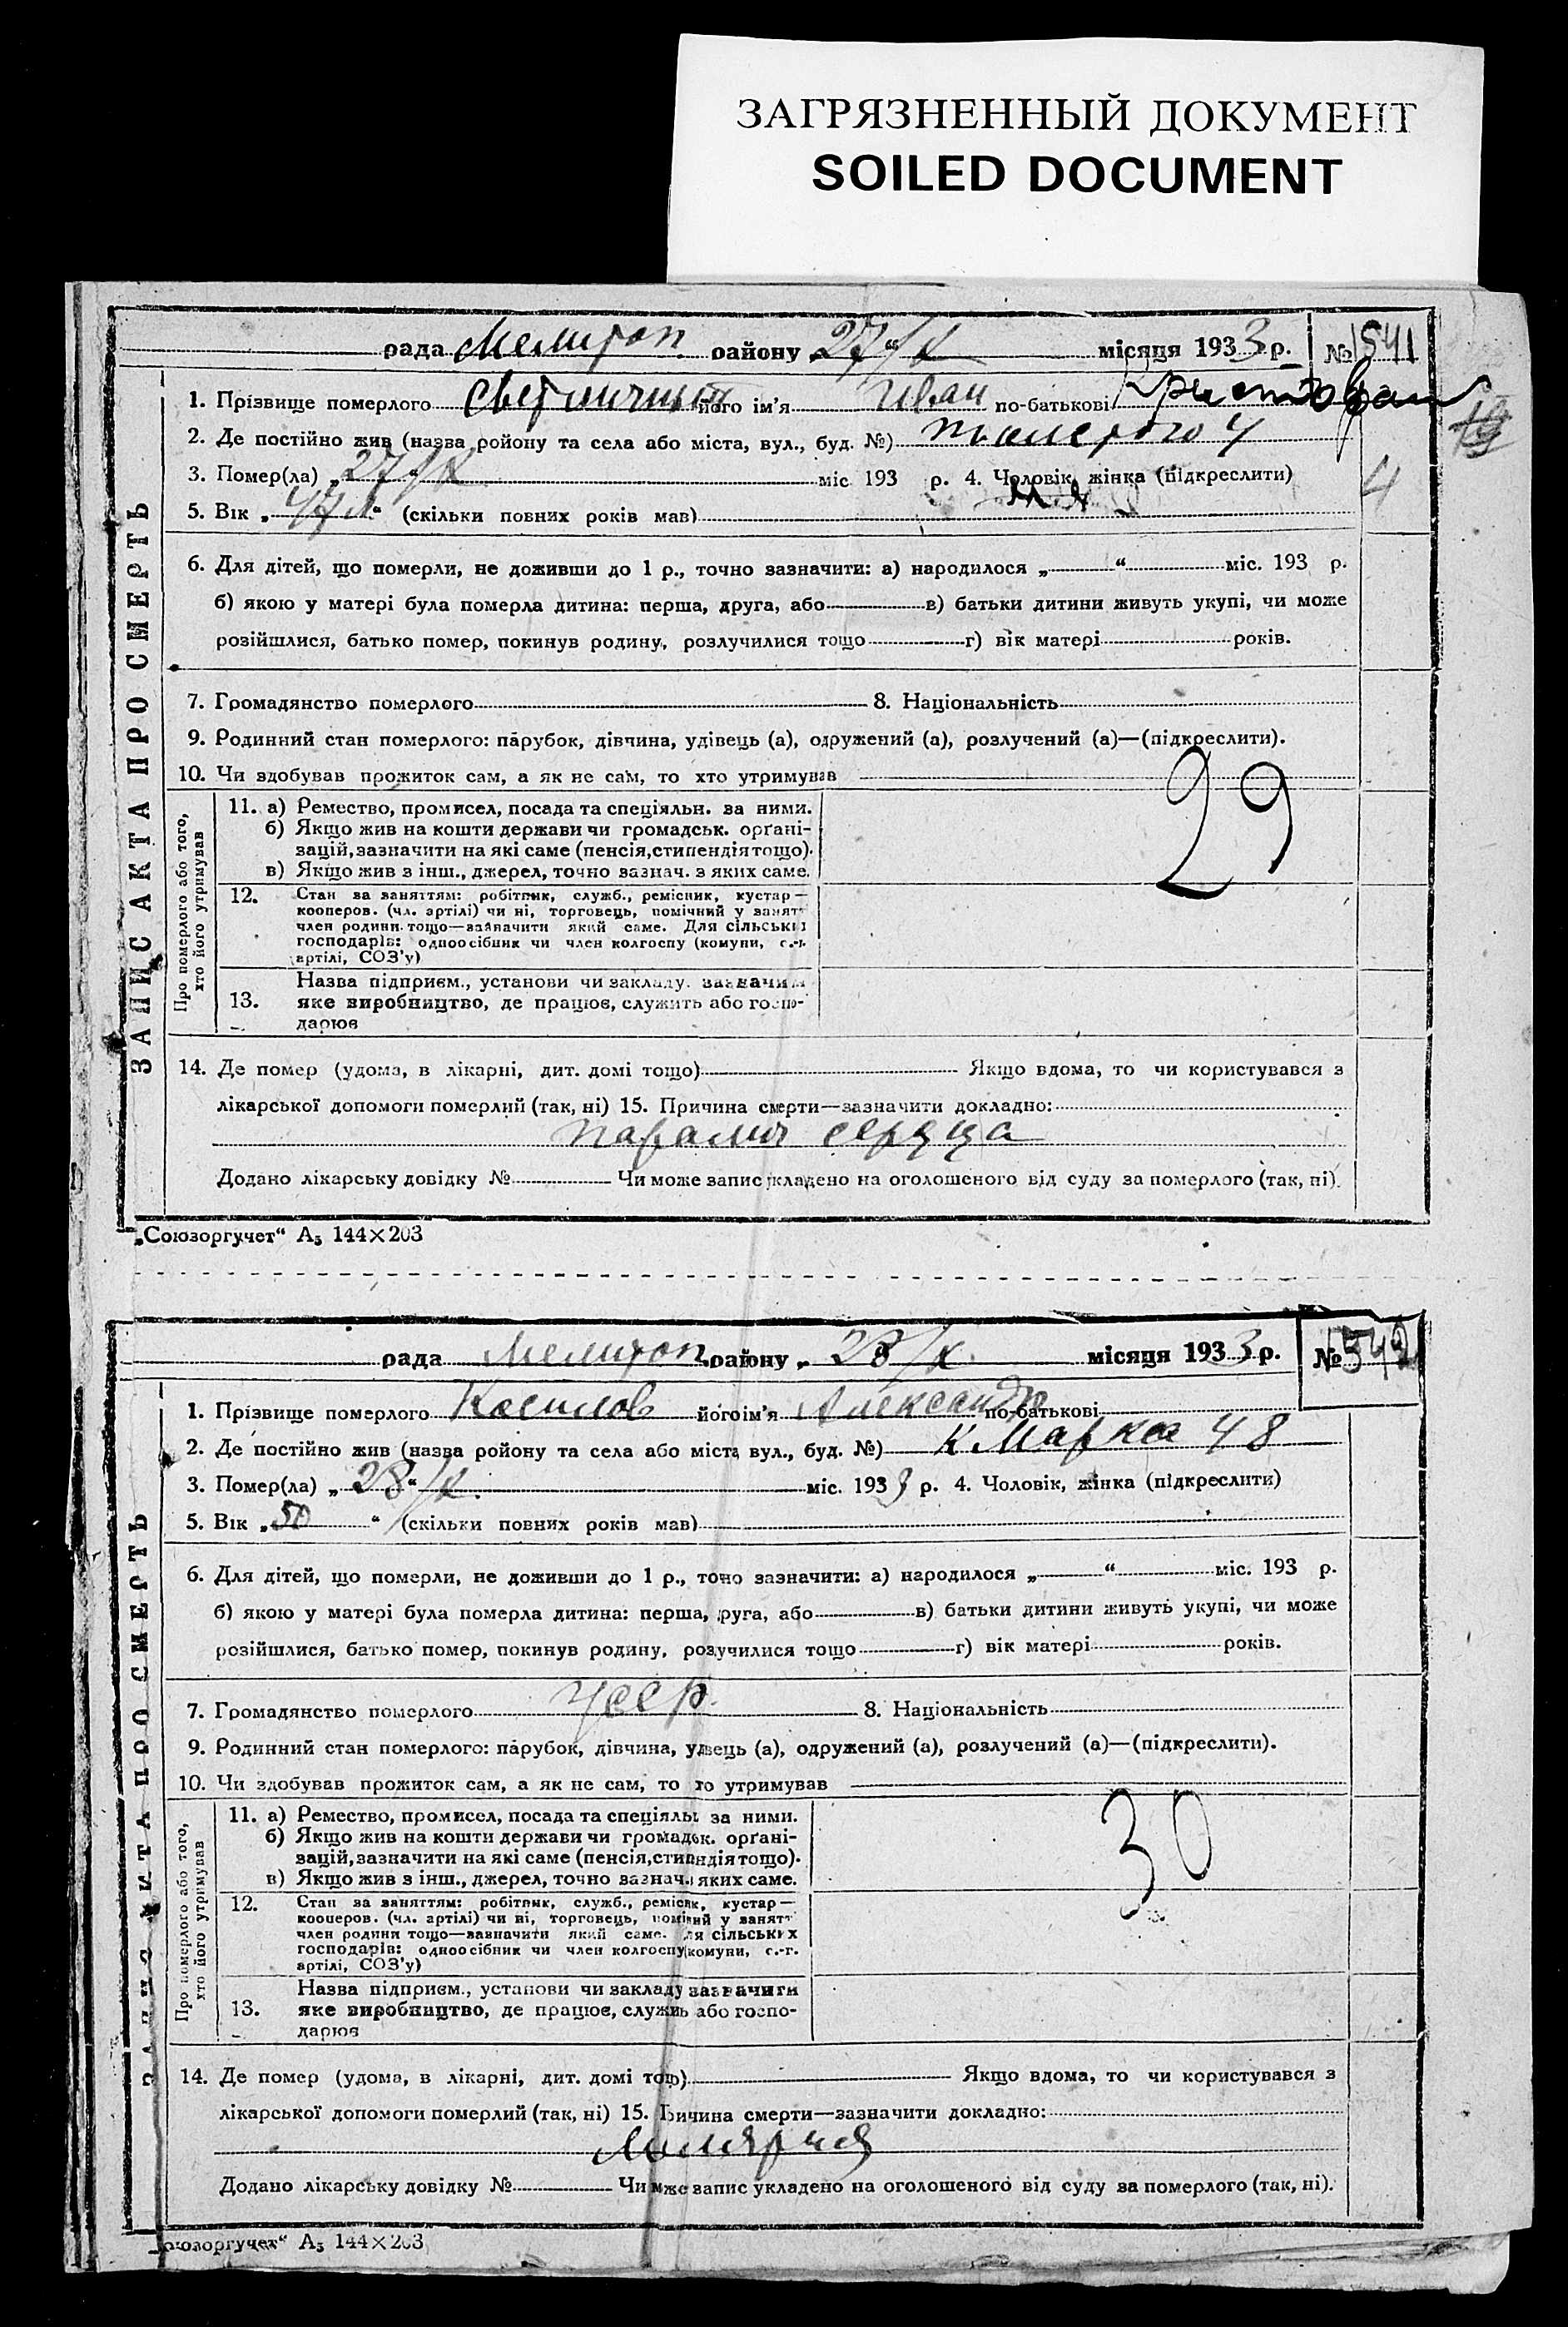 ЗАГРЯЗНЕННЫЙ ДОКУМЕНТ
SOILED DOCUMENT
рада Мелитоп. району „27“/X місяця 1933 р. № 1541
1. Прізвище померлого його ім'я Иван по-батькові
2. Де постійно жив (назва ройону та села або міста, вул., буд. №) 4
3. Помер(ла) „27“/X міс 193 р. 4. Чоловік, жінка (підкреслити)
4
5. Вік „ “ (скільки повних років мав)
ЗАПИС АКТА ПРО СМЕРТЬ
6. Для дітей, що померли, не доживши до 1 р., точно зазначити: а) народилося „ “ міс. 193 р.
б) якою у матері була померла дитина: перша, друга, або в) батьки дитини живуть укупі, чи може
розійшлися, батько помер, покинув родину, розлучилися тощо г) вік матері років.
7. Громадянство померлого 8. Національність
9. Родинний стан померлого: парубок, дівчина, удівець (а), одружений (а), розлучений (а)—(підкреслити).
10. Чи здобував прожиток сам, а як не сам, то хто утримував
29
Про померлого або того,
хто його утримував
11. а) Ремество, промисел, посада та спеціяльн. за ними.
б) Якщо жив на кошти держави чи громадськ. орґані-
зацій, зазначити на які саме (пенсія, стипендія тощо).
в) Якщо жив з інш., джерел, точно зазнач. з яких саме.
12. Стан за заняттям: робітник, служб., ремісник, кустар—
кооперов. (чл. артілі) чи ні, торговець, помічний у занятт
член родини тощо—зазначити який саме. Для сільськ
господарів: одноосібник чи член колгоспу (комуни, с.-г.
артілі, СОЗ'у)
Назва підприєм., установи чи закладу зазначити
13. яке виробництво, де працює, служить або госпо-
дарює
14. Де помер (удома, в лікарні, дит. домі тощо) Якщо вдома, то чи користувався з
лікарської допомоги померлий (так, ні) 15. Причина смерти—зазначити докладно:
паралич сердца
Додано лікарську довідку № Чи може запис укладено на оголошеного від суду за померлого (так, ні).
„Союзоргучет“ А₅ 144×203
рада Мелитоп. району „28“/X місяця 1933 р. № 1542
1. Прізвище померлого Косилов його ім'я Александр по-батькові
2. Де постійно жив (назва ройону та села або міста, вул., буд. №) К Маркса 48
3. Помер(ла) „28“/X. міс. 1933 р. 4. Чоловік, жінка (підкреслити)
5. Вік „50“ (скільки повних років мав)
6. Для дітей, що померли, не доживши до 1 р., точно зазначити: а) народилося „ “ міс. 193 р.
б) якою у матері була померла дитина: перша, друга, або в) батьки дитини живуть укупі, чи може
розійшлися, батько помер, покинув родину, розлучилися тощо г) вік матері років.
7. Громадянство померлого УССР. 8. Національність
9. Родинний стан померлого: парубок, дівчина, удівець (а), одружений (а), розлучений (а)—(підкреслити).
10. Чи здобував прожиток сам, а як не сам, то хто утримував
30
Про померлого або того,
хто його утримував
11. а) Ремество, промисел, посада та спеціяльн за ними.
б) Якщо жив на кошти держави чи громадськ. орґані-
зацій, зазначити на які саме (пенсія, стипендія тощо).
в) Якщо жив з інш., джерел, точно зазнач. з яких саме.
12. Стан за заняттям: робітник, служб., ремісник, кустар—
кооперов. (чл. артілі) чи ні, торговець, помічний у занятт
член родини тощо—зазначити який саме. Для сільських
господарів: одноосібник чи член колгоспу (комуни, с.-г.
артілі, СОЗ'у)
Назва підприєм., установи чи закладу зазначити
13. яке виробництво, де працює, служить або госпо-
дарює
14. Де помер (удома, в лікарні, дит. домі тощо) Якщо вдома, то чи користувався з
лікарської допомоги померлий (так, ні) 15. Причина смерти—зазначити докладно:
Додано лікарську довідку № Чи може запис укладено на оголошеного від суду за померлого (так, ні).
„Союзоргучет“ А₅ 144×203